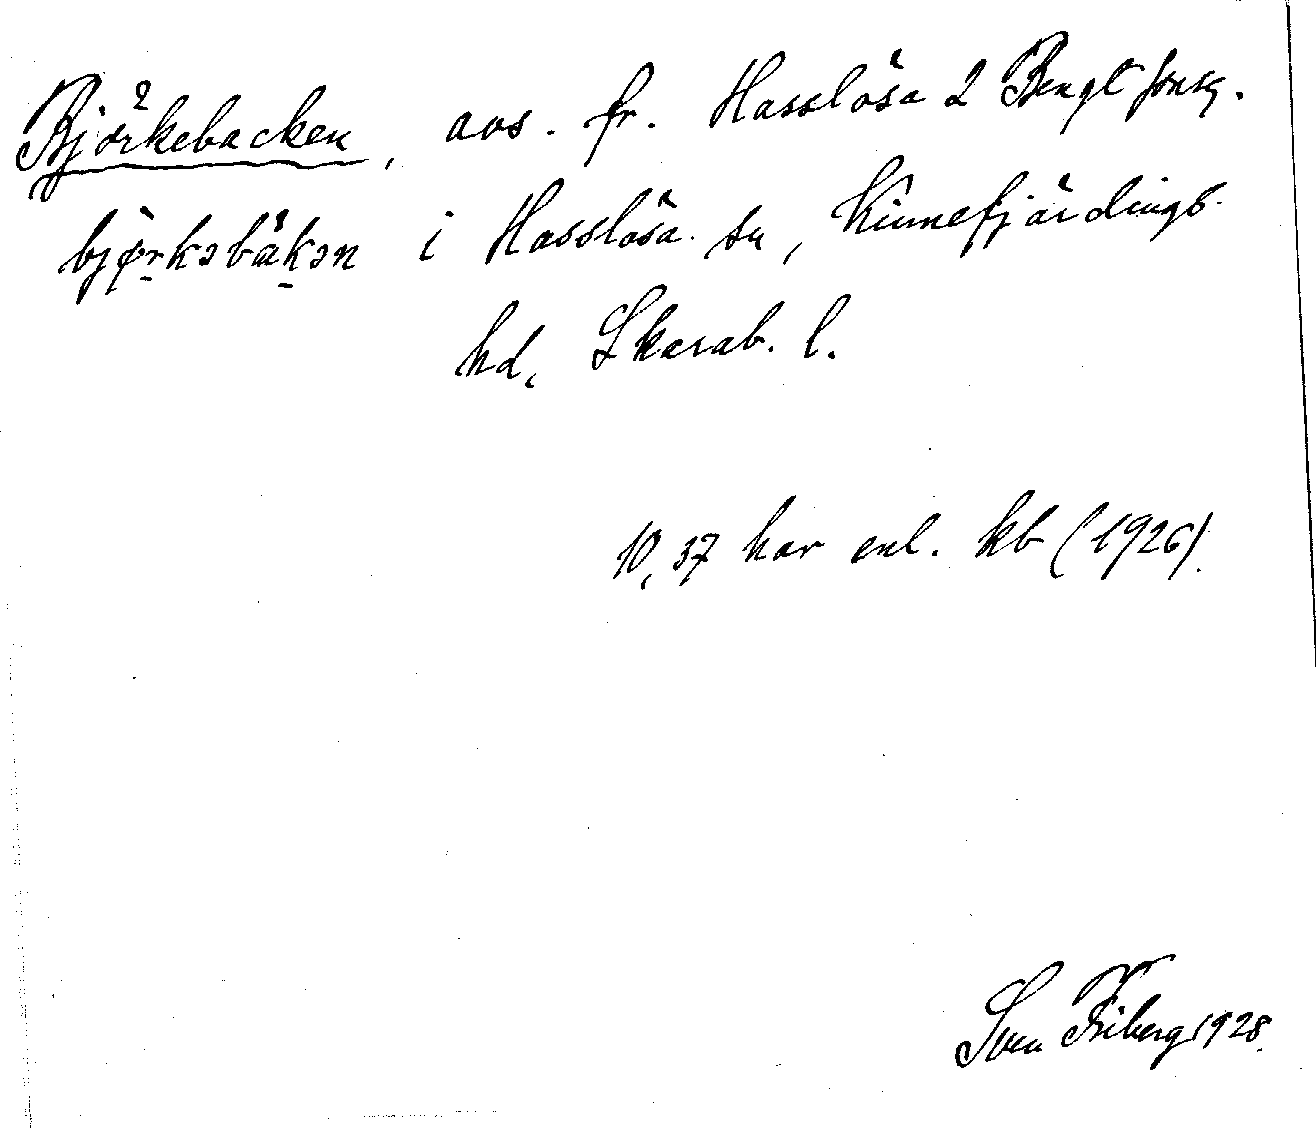 Björkebacken, avs. fr. Hasslösa 2 Bengtsonsg.
bjø̀rkəbákən i Hasslösa sn, Kinnefjärdings
hd, Skarab. l.
10,37 har enl. kb (1926).
Sven Friberg 1928.